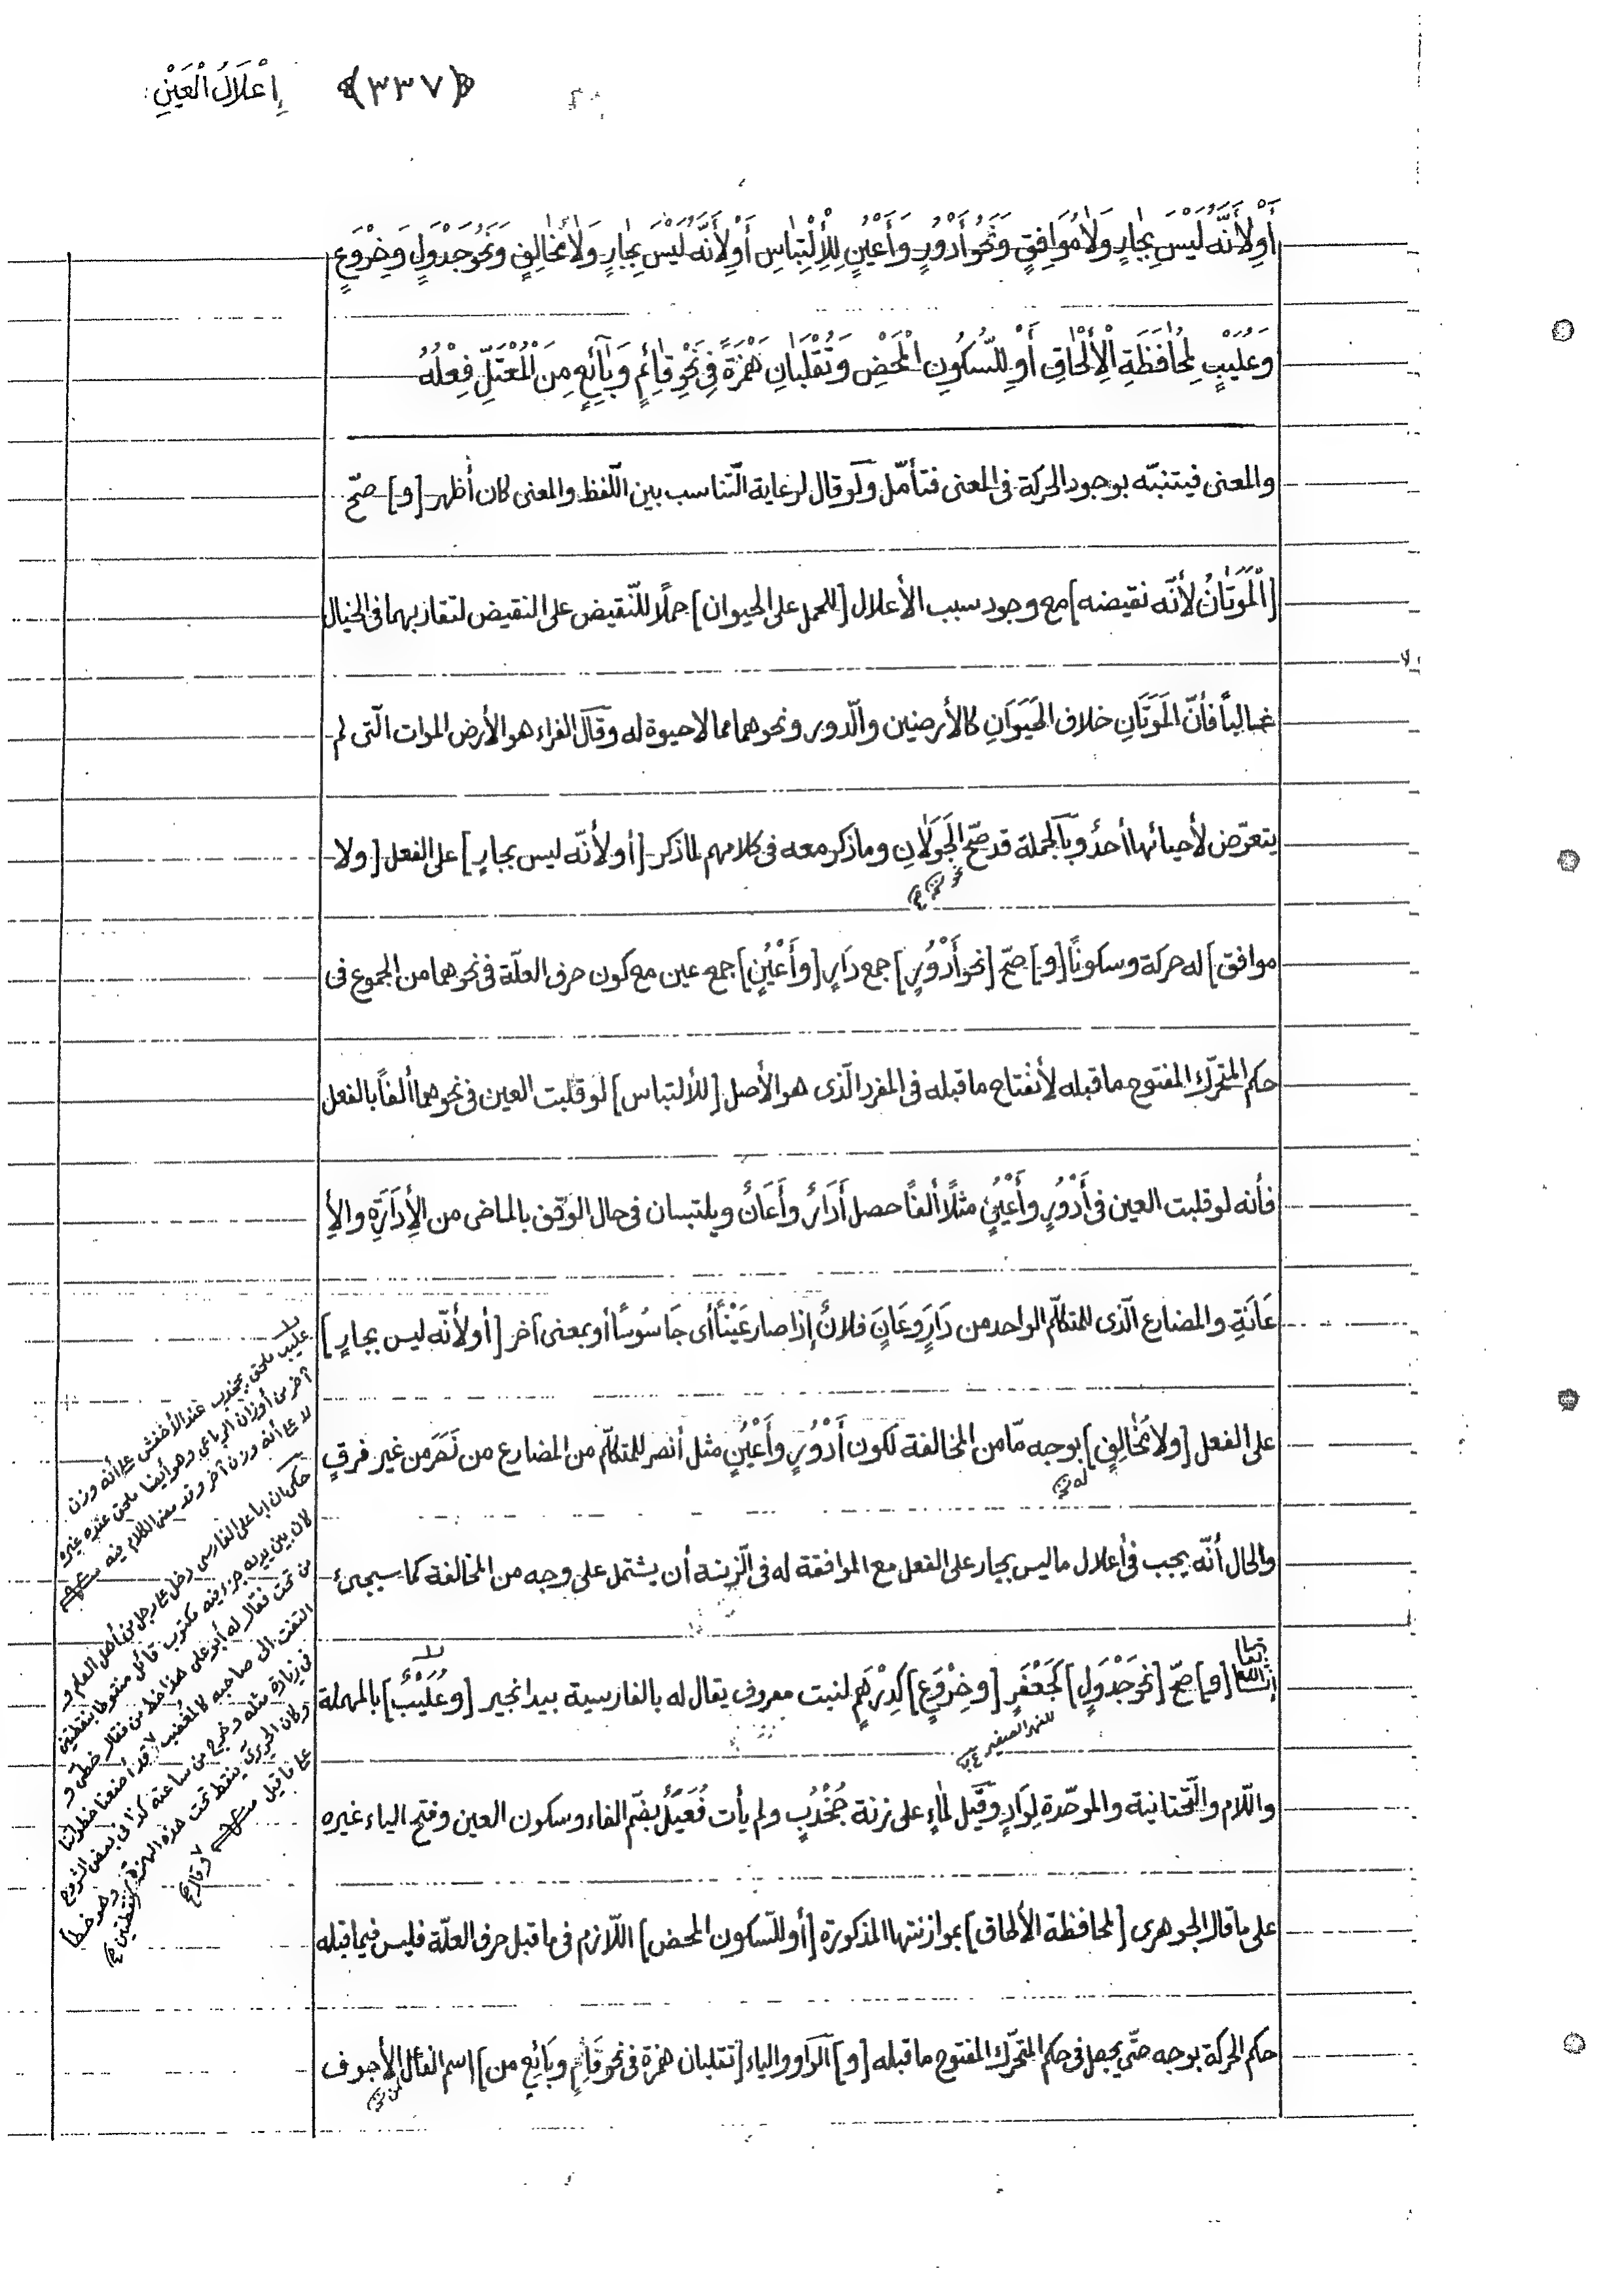 إِعْلَالُ الْعَيْنِ: ﴿٣٣٧﴾
أَوْلِأَنَّهُ لَيْسَ بِجٰارٍ وَلٰا مُوَافِقٍ وَنَحْوُ أَدْوُرٍ وَأَعْيُنٍ لِلْأِلْتِبٰاسِ أَوْلِأَنَّهُ لَيْسَ بِجٰارٍ وَلٰا مُخٰالِفٍ وَنَحْوُ جَدْوَلٍ وَخِرْوَعٍ
وَعُلْيَبٍ لِمُحٰافَظَةِ الْأِلْحٰاقِ أَوْ لِلسُّكُونِ الْمَحْضِ وَتُقْلَبٰانِ هَمْزَةً فِي نَحْوِ قٰائِمٍ وَبٰائِعٍ مِنَ الْمُعْتَلِّ فِعْلُهُ
والمعنى فيتنبّه بوجود الحركة فى المعنى فتأمّل ولو قال لرعاية التّناسب بين اللّفظ والمعنى كان أظهر [و] صحّ
[الْمَوَتٰانُ لأنّه نقيضه] مع وجود سبب الأعلال [للحمل على الحيوان] حملًا للنّقيض على النقيض لتقاربهما فى الخيال
غالباً فأنّ المَوَتَانِ خلاف الحَيَوَانِ كالأرضين والدّور ونحوهما مما لا حيوة له وقال الفراء هو الأرض الموات الّتى لم
يتعرّض لأحيائها أحدٌ وبالجملة قد صحّ الجَوَلَانِ وما ذكر معه فى كلامهم لما ذكر [أو لأنّه ليس بجارٍ] على الفعل [ولا
موافق] له حركة وسكونًا [و] صحّ [نحو أَدْوُرٍ] جمع دَارٍ [وأَعْيُنٍ] جمع عين مع كون حرف العلّة فى نحوهما من الجموع فى
حكم المتحرّك المفتوح ما قبله لأنفتاح ما قبله فى المفرد الّذى هو الأصل [للألتباس] لو قلبت العين فى نحوهما ألفاً بالفعل
فأنه لو قلبت العين فى أَدْوُرٍ وأَعْيُنٍ مثلًا ألفاً حصل أَدَارٌ وأَعَانٌ ويلتبسان فى حال الوقف بالماضى من الأِدَارَةِ والأِ
عَانَةِ والمضارع الّذى للمتكلّم الواحد من دَارَ وعَانَ فلانٌ إذا صار عَيْنًا أى جَاسُوسًا أو بمعنى آخر [أو لأنّه ليس بجارٍ]
على الفعل [ولا مُخٰالِفٍ] بوجه مّا من المخالفة لكون أَدْوُرٍ وأَعْيُنٍ مثل أنصر للمتكلّم من المضارع من نَصَرَ من غير فرقٍ
والحال أنّه يجب فى أعلال ما ليس بجار على الفعل مع الموافقة له فى الزنة أن يشتمل على وجه من المخالفة كما سيجئ
إنشاالله تعا [و] صحّ [نحو جَدْوَلٍ] كَجَعْفَرٍ [وخِرْوَعٍ] كَدِرْهَمٍ لنبت معروف يقال له بالفارسية بيدانجير [وعُلْيَبٌ] بالمهملة
للنهر الصغير
واللّام والتّحتانية والموحّدة لِوَادٍ وقيل لماءٍ على زنة جُخْدُبٍ ولم يأت فُعْيَلٌ بضّم الفاء وسكون العين وفتح الياء غيره
على ما قال الجوهرى [لمحافظة الألحاق] بموازنتها المذكورة [أو للسّكون المحض] اللّازم فى ما قبل حرف العلّة فليس فيما قبله
حكم الحركة بوجه حتّى يجعل فى حكم المتحرّك المفتوح ما قبله [و] الواو والياء [تقلبان همزة فى نحو قَائِمٍ وبَائِعٍ من] اسم الفاعل الأجوف
عليب ملحق بجخدب عند الأخفش على أنه وزن
آخر من أوزان الرباعى وهو أيضا ملحق عنده غيره
لا على أنه وزن آخر وقد مضى الكلام فيه
حكى ان ابا على الفارسى دخل على رجل من أهل العلم و
كان بين يديه جزء فيه مكتوب قائل منقوطا بنقطتين
من تحت فقال له أبو على هذا خط من فقال خطى و
التفت الى صاحبه كالمغضب لا قد أضعنا خطواتنا
فى زيارة مثله وخرج من ساعته كذا فى بعض الشروح
وكان الحريرى ينقط تحت هذه الهمزة بنقطتين وهو خطأ
على ما قيل